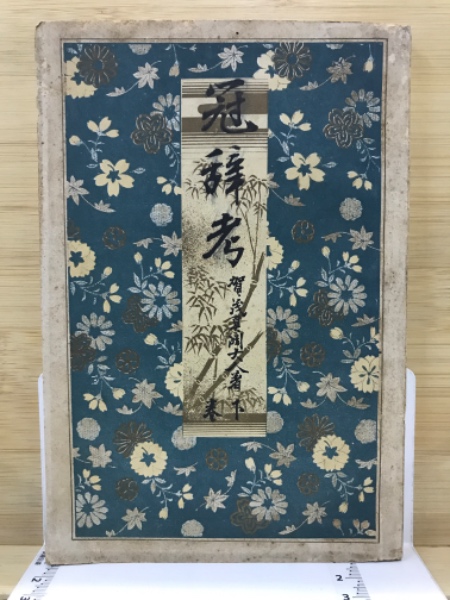 冠辞考
賀茂真淵大人著
下巻
2
2
3